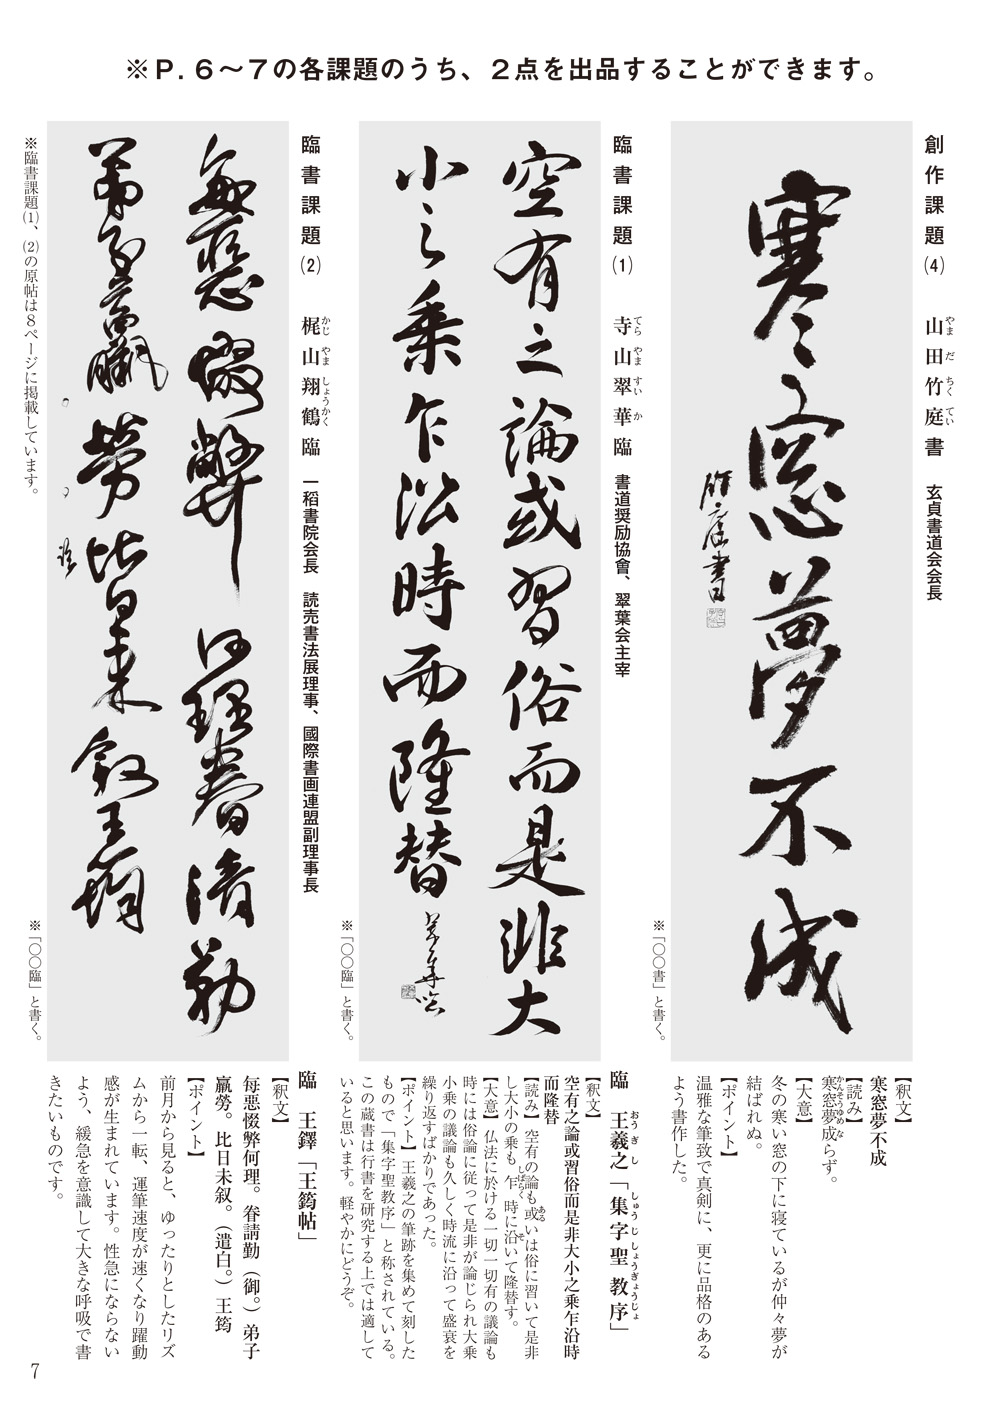 ※Ｐ.６～７の各課題のうち、２点を出品することができます。
創作課題(4)　山田竹庭書　玄貞書道会会長
やま だ ちく てい
寒窓夢不成
竹庭書
※「〇〇書」と書く。
【釈文】
寒窓夢不成
【読み】
寒窓夢成らず。
かんそうゆめな
【大意】
冬の寒い窓の下に寝ているが仲々夢が
結ばれぬ。
【ポイント】
温雅な筆致で真剣に、更に品格のある
よう書作した。
臨書課題(1)　寺山翠華臨　書道奨励協會、翠葉会主宰
てら やま すい か
空有之論或習俗而是非大
小之乗乍沿時而隆替
翠華臨
※「〇〇臨」と書く。
臨　王羲之「集字聖教序」
おう ぎ し しゅう じ しょうぎょうじょ
【釈文】
空有之論或習俗而是非大小之乗乍沿時
而隆替
【読み】空有の論も或いは俗に習いて是非
ある
し大小の乗も乍時に沿いて隆替す。
しばらく そ
【大意】仏法に於ける一切一切有の議論も
時には俗論に従って是非が論じられ大乗
小乗の議論も久しく時流に沿って盛衰を
繰り返すばかりであった。
【ポイント】王羲之の筆跡を集めて刻した
もので「集字聖教序」と称されている。
この蔵書は行書を研究する上では適して
いると思います。軽やかにどうぞ。
臨書課題(2)　梶山翔鶴臨　一稲書院会長　読売書法展理事、國際書画連盟副理事長
かじ やま しょうかく
毎惡惙弊何理眷請勤
弟子羸勞比日未叙王筠
※「〇〇臨」と書く。
臨　王鐸「王筠帖」
【釈文】
毎惡惙弊何理。眷請勤（御。）弟子
羸勞。比日未叙。（遣白。）王筠
【ポイント】
前月から見ると、ゆったりとしたリズ
ムから一転、運筆速度が速くなり躍動
感が生まれています。性急にならない
よう、緩急を意識して大きな呼吸で書
きたいものです。
※臨書課題(1)、(2)の原帖は８ページに掲載しています。
7